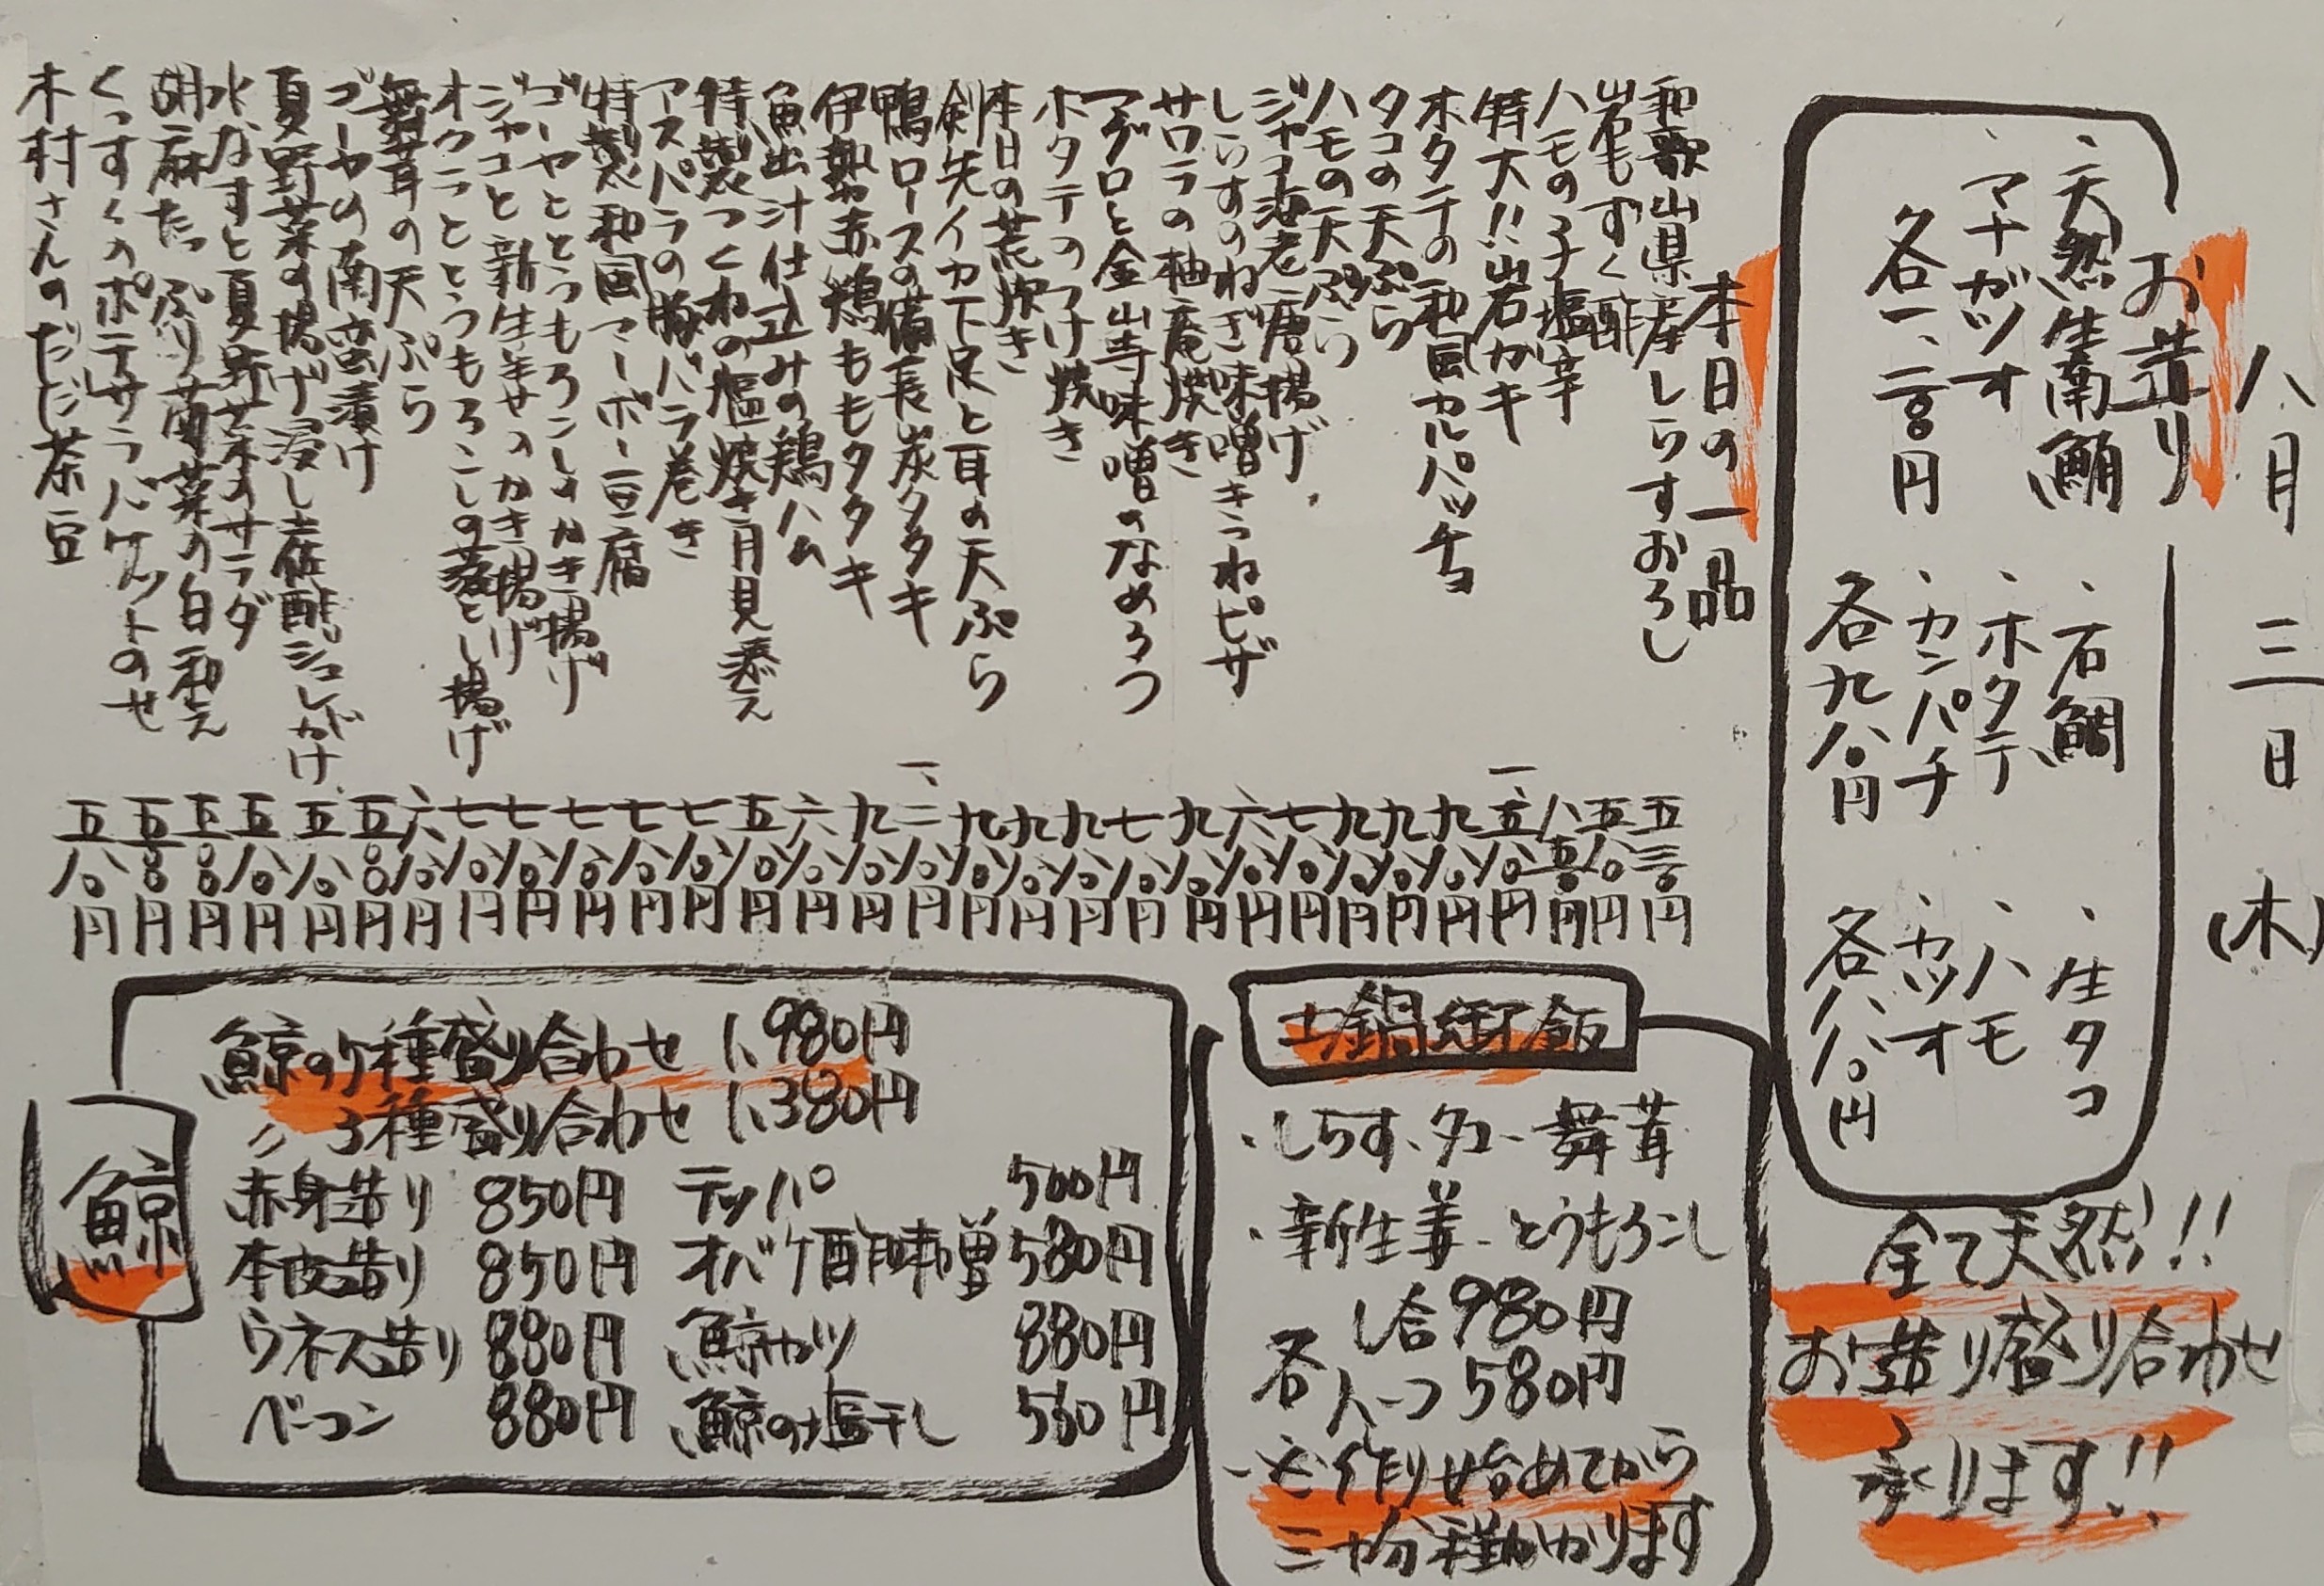 八月三日(木)
お造り
・天然生南鮪
・マナガツオ
各一、二〇〇円
・石鯛
・ホタテ
・カンパチ
各九八〇円
・生タコ
・ハモ
・カツオ
各八八〇円
全て天然!!
お造り盛り合わせ
承ります!!
本日の一品
和歌山県産しらすおろし 五三〇円
岩もずく酢 五八〇円
ハモの子塩辛 八五〇円
特大!!岩ガキ 一、五八〇円
ホタテの和風カルパッチョ 九八〇円
タコの天ぷら 九八〇円
ハモの天ぷら 九八〇円
ジャコ海老唐揚げ 七八〇円
しらすのねぎ味噌きつねピザ 六八〇円
サワラの柚庵焼き 九八〇円
マグロと金山寺味噌のなめろう 七八〇円
ホタテのつけ焼き 九八〇円
本日の荒炊き 九八〇円
剣先イカ下足と耳の天ぷら 九八〇円
鴨ロースの備長炭タタキ 一、二八〇円
伊勢赤鶏ももタタキ 九八〇円
魚出汁仕込みの鶏ハム 六八〇円
特製つくねの塩焼き月見添え 五八〇円
アスパラの豚バラ巻き 七八〇円
特製和風マーボー豆腐 七八〇円
ゴーヤととうもろこしのかき揚げ 七八〇円
ジャコと新生姜のかき揚げ 七八〇円
オクラととうもろこしの落とし揚げ 七八〇円
舞茸の天ぷら 六八〇円
ゴーヤの南蛮漬け 五〇〇円
夏野菜の揚げ浸し土佐酢ジュレがけ 五八〇円
水なすと夏野菜のサラダ 五八〇円
胡麻たっぷり菊菜の白和え 五〇〇円
くっすくのポテサラバケットのせ 五〇〇円
木村さんのだだ茶豆 五八〇円
土鍋御飯
・しらす・タコ・舞茸
・新生姜・とうもろこし
各 1合980円
ハーフ580円
・お作り始めてから
三十分程かかります
鯨
鯨の5種盛り合わせ 1、980円
〃 3種盛り合わせ 1、380円
赤身造り 850円 テッパ 500円
本皮造り 850円 オバケ酢味噌 580円
ウネス造り 880円 鯨カツ 880円
ベーコン 880円 鯨の塩干し 550円